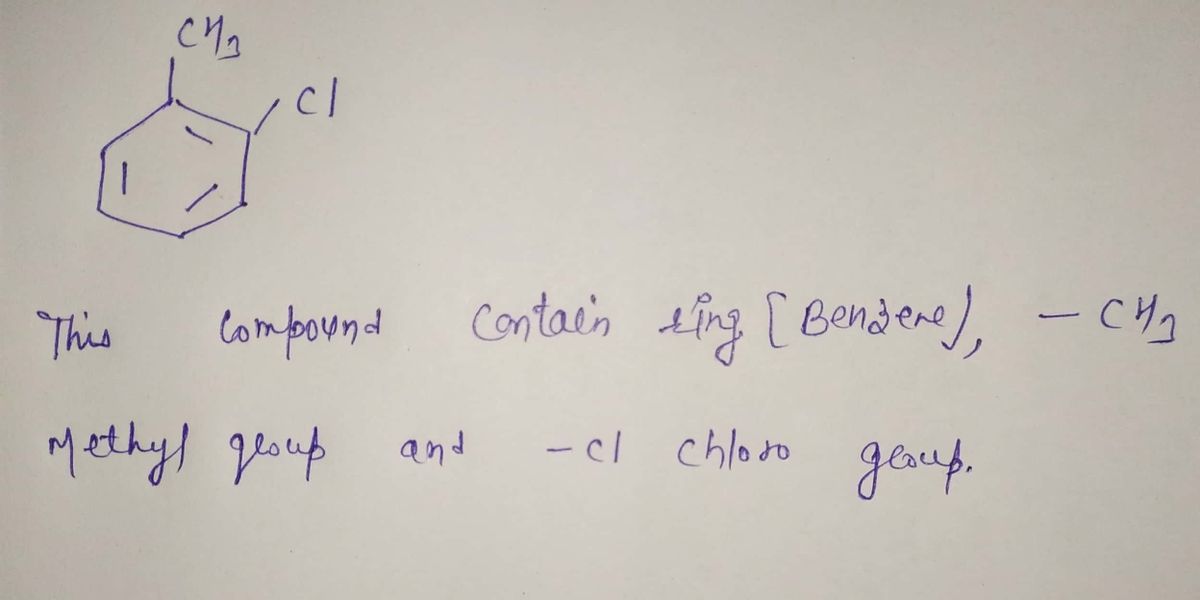 CH3
Cl
This compound contain ring [Benzene), - CH3
Methyl group and - cl chloro group.